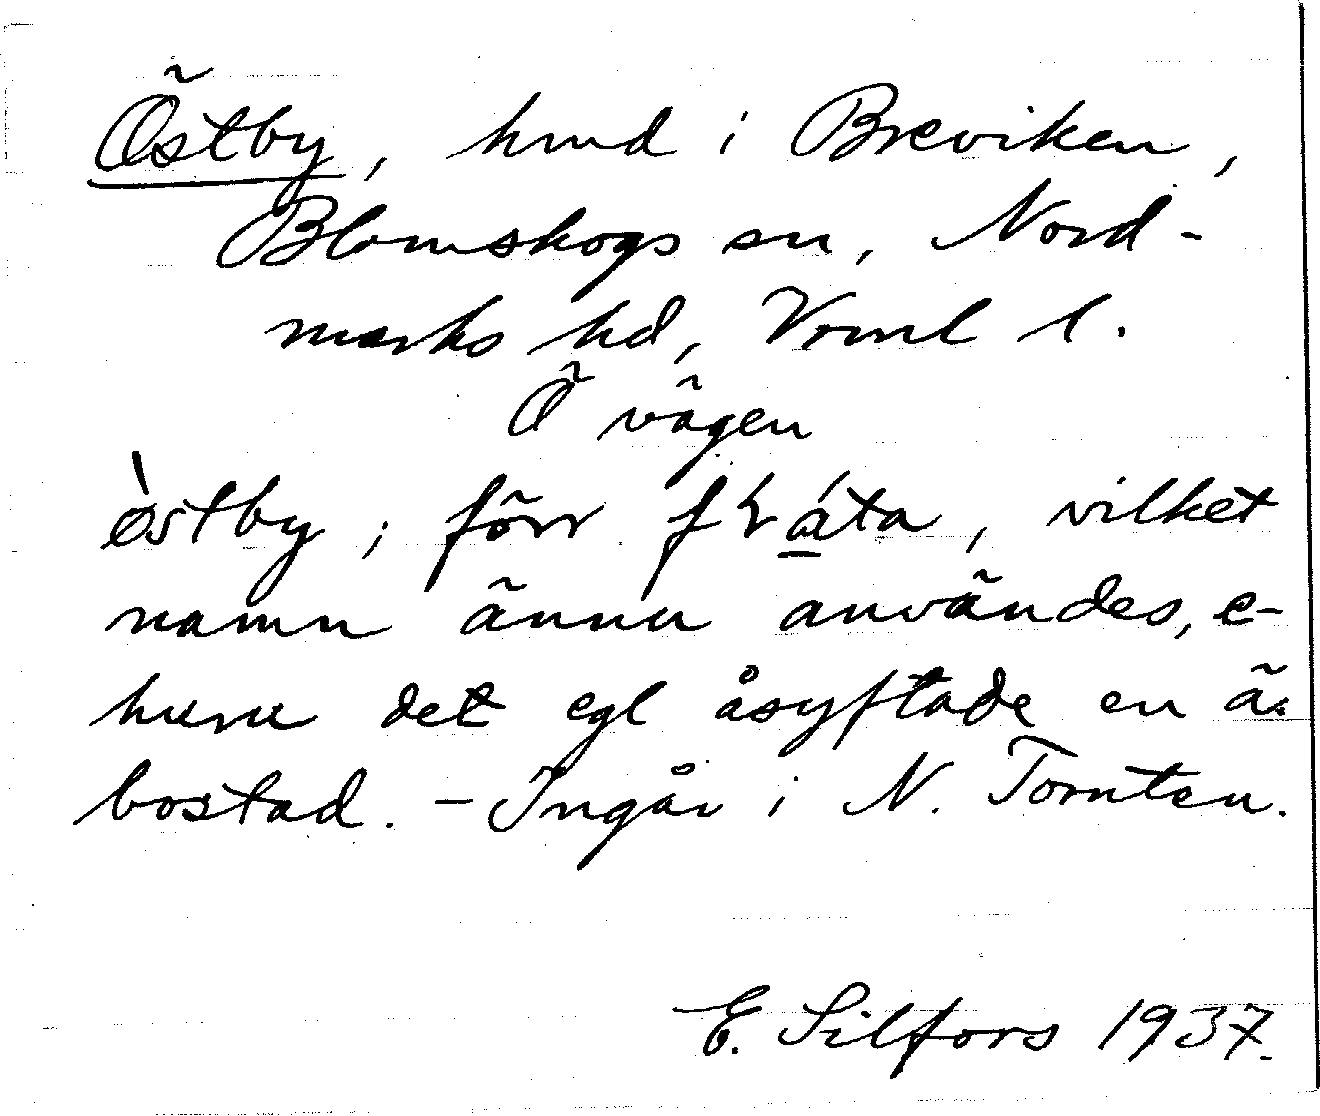 Östby, hmd i Breviken,
Blomskogs sn, Nord-
marks hd, Vrml l.
Ö vägen
òstby; förr fláta, vilket
namn ännu användes, e-
huru det egl åsyftade en ä.
bostad. - Ingår i N. Tomten.
E. Silfors 1937.